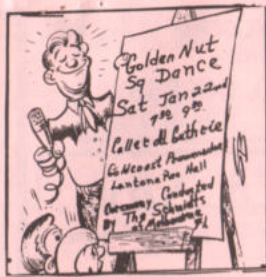 Golden Nut
Sq Dance
Sat Jan 22nd
7 30 9 30
Caller Al Guthrie
Goldcoast Promenaders
Lantana Rec Hall
Ceremony Conducted
By The Schmidts
of Melbourne